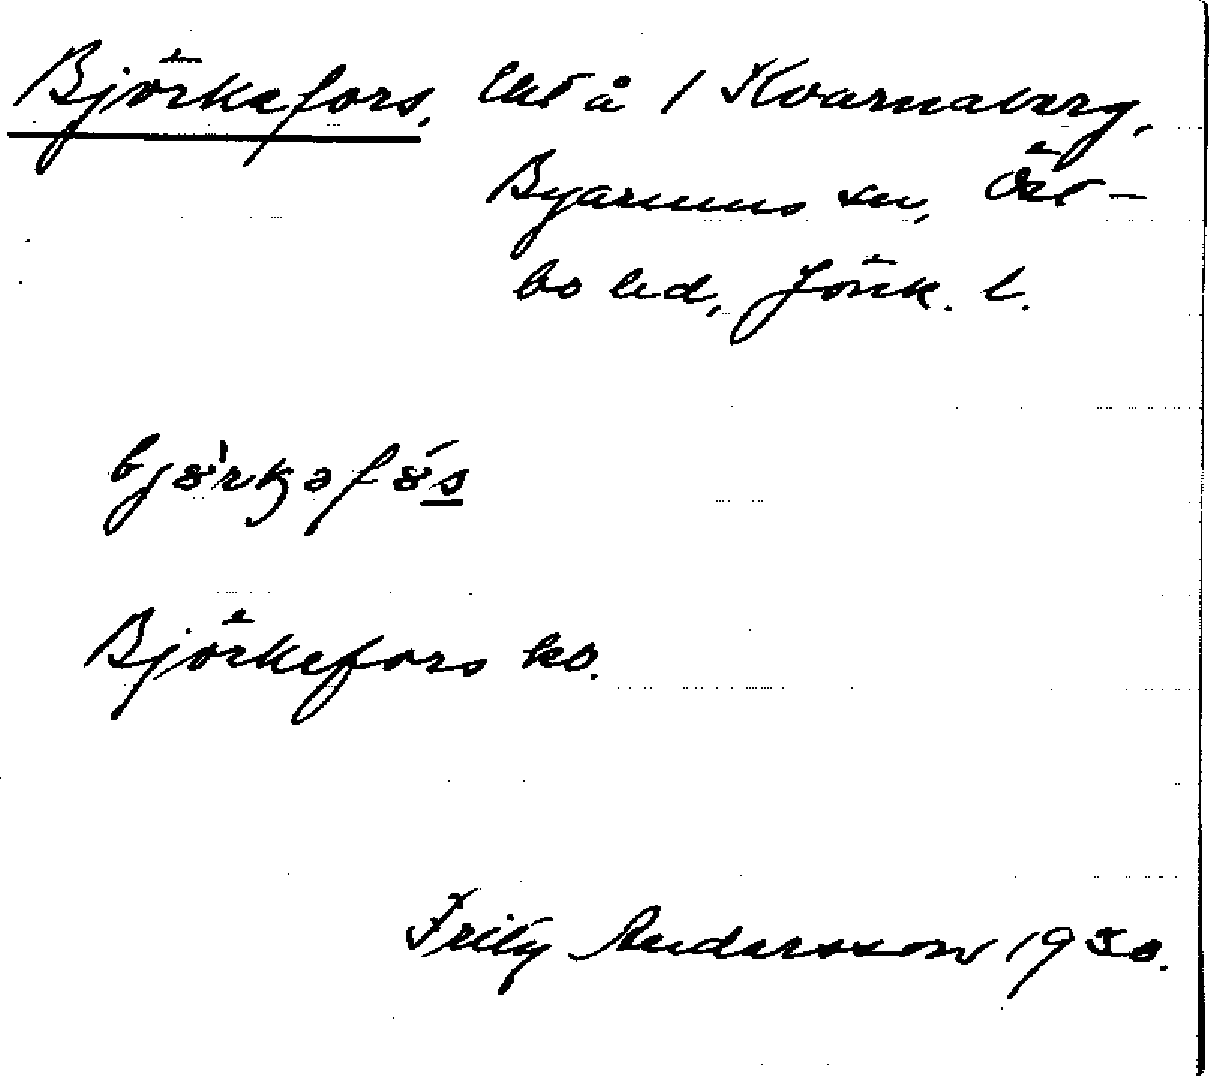 Björkefors, lht å 1 Kvarnaberg,
Byarums sn, Öst-
bo hd, Jönk. l.
björkəfös
Björkefors ko.
Fritz Andersson 1930.